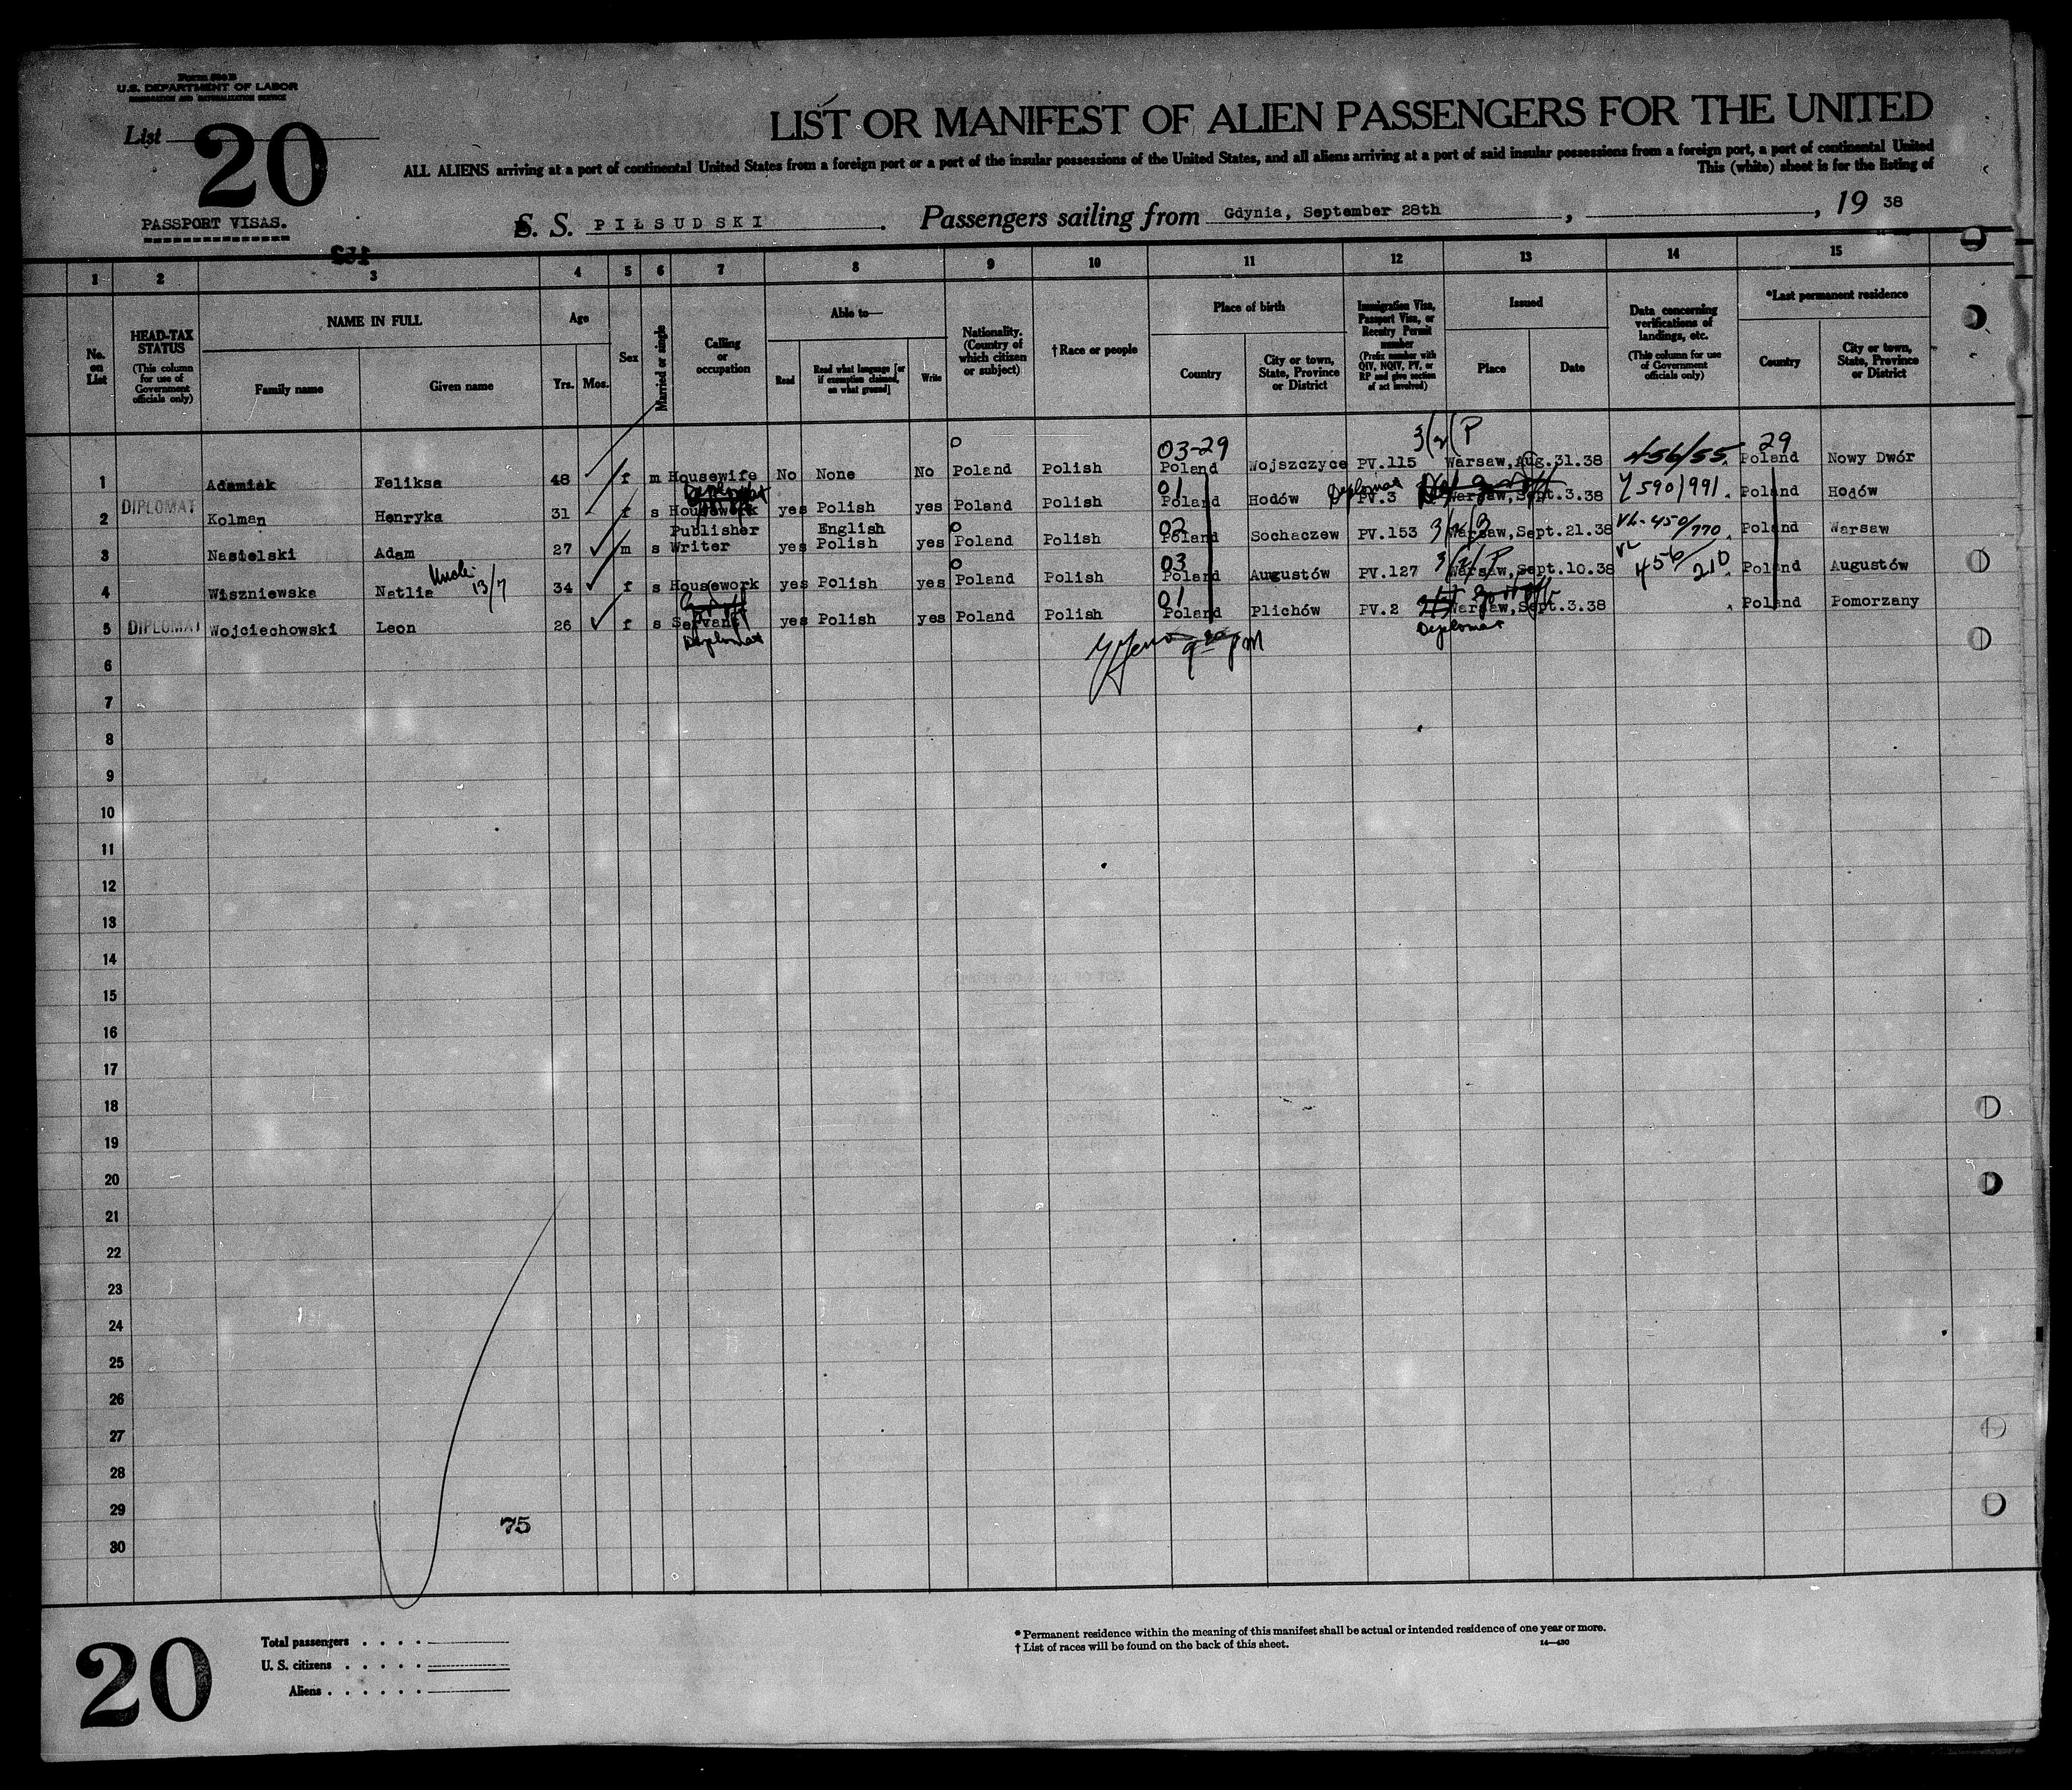 Form 500 B
U.S. DEPARTMENT OF LABOR
IMMIGRATION AND NATURALIZATION SERVICE
List 20
LIST OR MANIFEST OF ALIEN PASSENGERS FOR THE UNITED
ALL ALIENS arriving at a port of continental United States from a foreign port or a port of the insular possessions of the United States, and all aliens arriving at a port of said insular possessions from a foreign port, a port of continental United
This (white) sheet is for the listing of
PASSPORT VISAS.
S. S. PIŁSUDSKI. Passengers sailing from Gdynia, September 28th, , 19 38
1 2 3 4 5 6 7 8 9 10 11 12 13 14 15
No. on List
HEAD-TAX STATUS (This column for use of Government officials only)
NAME IN FULL Family name Given name
Age Yrs. Mos.
Sex
Married or single
Calling or occupation
Able to— Read Read what language [or if exemption claimed, on what ground] Write
Nationality. (Country of which citizen or subject)
†Race or people
Place of birth Country City or town, State, Province or District
Immigration Visa, Passport Visa, or Reentry Permit number (Prefix number with QIV, NQIV, PV, or RP and give section of act involved)
Issued Place Date
Data concerning verifications of landings, etc. (This column for use of Government officials only)
*Last permanent residence Country City or town, State, Province or District
03-29 3/2/P 29
1 Adamiak Feliksa 48 f m Housewife No None No Poland Polish Poland Wojszczyce PV.115 Warsaw, Aug.31.38 456/55 Poland Nowy Dwór
Diplomat 01 Diplomat
2 DIPLOMAT Kolman Henryka 31 f s Housework yes Polish yes Poland Polish Poland Hodów PV.3 Warsaw, Sept.3.38 590/991 Poland Hodów
Publisher English 02 3/2/B VL-450/770
3 Nasielski Adam 27 m s Writer yes Polish yes Poland Polish Poland Sochaczew PV.153 Warsaw, Sept.21.38 Poland Warsaw
13/7 03 3/2/P VL 456/210
4 Wiszniewska Natlia 34 f s Housework yes Polish yes Poland Polish Poland Augustów PV.127 Warsaw, Sept.10.38 Poland Augustów
01
5 DIPLOMAT Wojciechowski Leon 26 f s Servant yes Polish yes Poland Polish Poland Plichów PV.2 Warsaw, Sept.3.38 Poland Pomorzany
Diplomat Diplomat
6
7
8
9
10
11
12
13
14
15
16
17
18
19
20
21
22
23
24
25
26
27
28
29
75
30
20
Total passengers
U. S. citizens
Aliens
* Permanent residence within the meaning of this manifest shall be actual or intended residence of one year or more.
† List of races will be found on the back of this sheet.
14—430